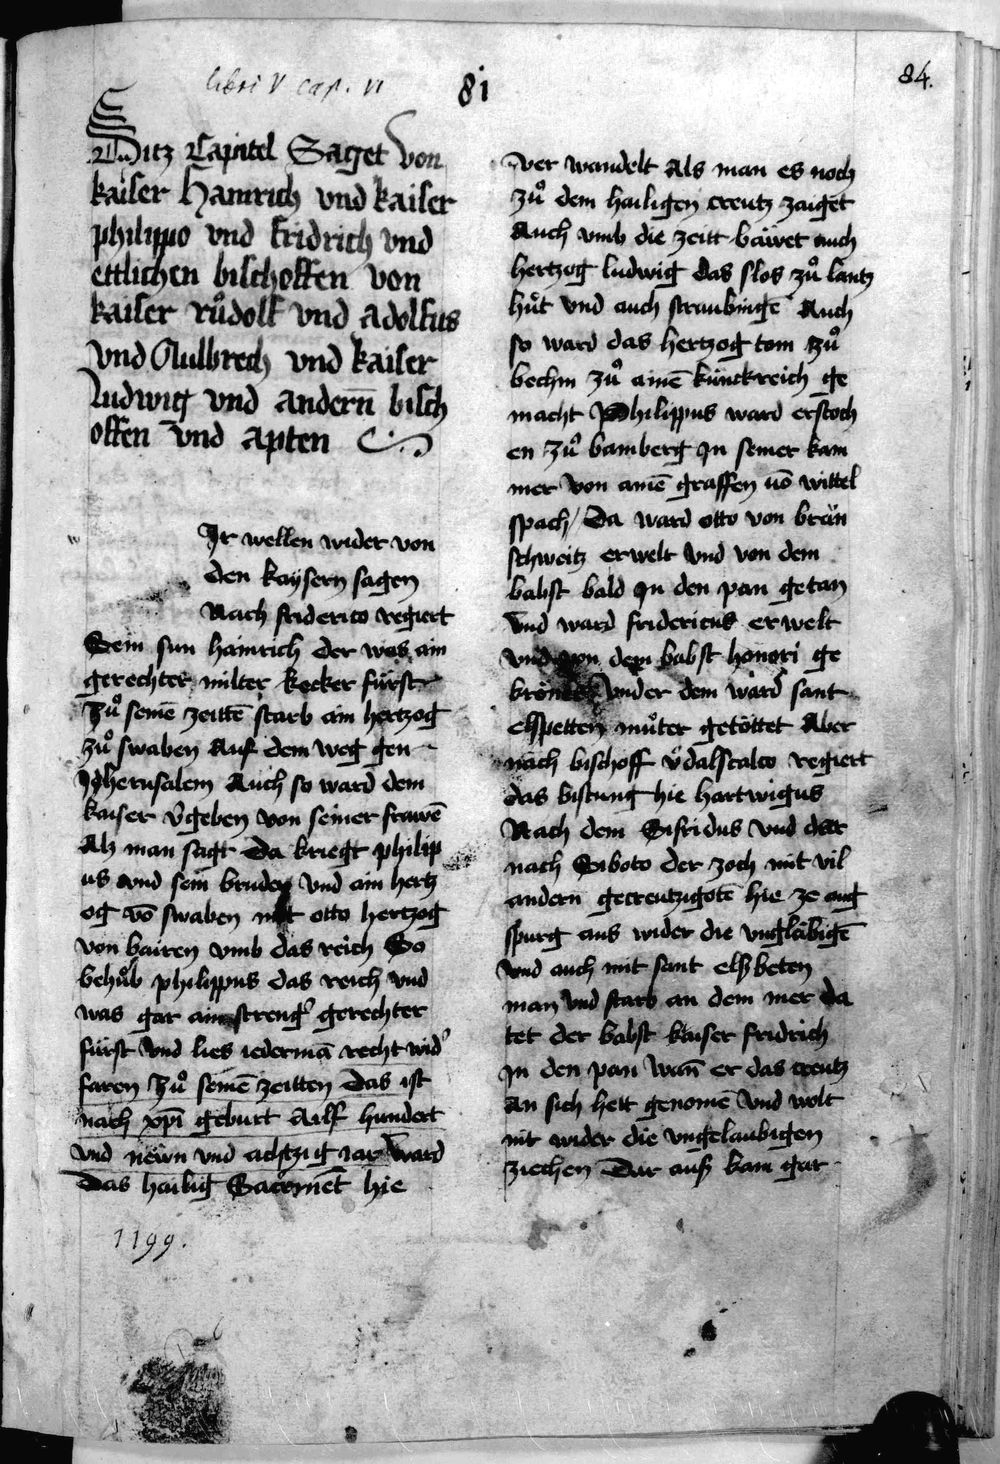 libri V cap. VI
81
84.
Ditz Capitel Saget von
kaiser Hainrich vnd kaiser
philippo vnd fridrich vnd
ettlichen bischoffen von
kaiser růdolf vnd adolfus
vnd Aulbrech vnd kaiser
ludwig vnd andern̄ bisch
offen vnd apten
Ir wellen wider von
den kaysern sagen
Nach friderico regiert
Sein sun hainrich der was ain
gerechter milter kecker fürst
Zů seinē zeittē starb ain hertzog
zů swaben Auf dem weg gen
Jherusalem Auch so ward dem
kaiser vgeben von seiner frawē
Als man sagt Da kriegt philip
us vnd sein bruder vnd ain hertz
og vō swaben mit otto hertzog
von bairen vmb das reich So
behůb philippus das reich vnd
was gar ain streng gerechter
fürst vnd lies iedermā recht wid
faren Zů seinē zeitten Das ist
nach xp̄i geburt Ailf hundert
vnd newn vnd achtzig iar ward
Das hailig Sacramēt hie
1199.
ver wandelt Als man es noch
zů dem hailigen creutz zaiget
Auch vmb die zeitt bäwet auch
hertzog ludwig das slos zů lantz
hůt vnd auch straubingē Auch
so ward das hertzog tom zů
bechm zů ainē künckreich ge
macht Philippus ward erstoch
en zů bamberg In seiner kam
mer von ainē graffen vō wittel
spach / Da ward otto von brün
schweitz erwelt vnd von dem
babst bald In den pan getan
vnd ward fridericus erwelt
vnd von dem babst honori ge
krönet vnder dem ward sant
elspetten můter getöttet Aber
nach bischoff vdalscalco regiert
das bistung hie hartwigus
Nach dem Sifridus vnd dar
nach Siboto der zoch mit vil
andern gecreutzigotē hie ze aug
spurg aus wider die vngläbigē
vnd auch mit sant elsbeten
man vnd starb an dem mer da
tet der babst kaiser fridrich
In den pan wan̄ er das creutz
an sich hett genomē vnd wolt
nit wider die vngelaubigen
ziechen Dar auß kam gar